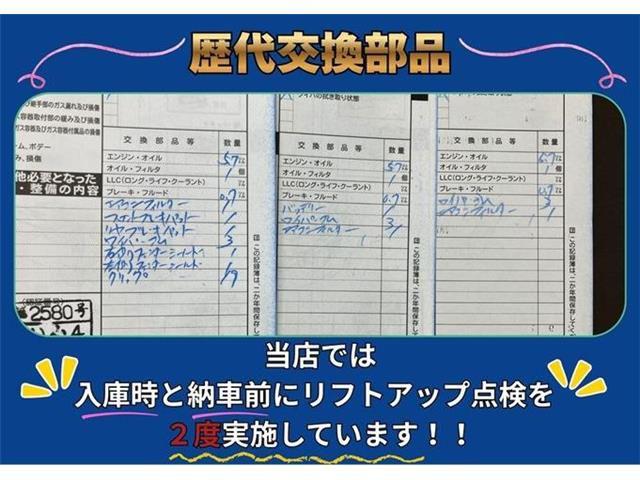 歴代交換部品
継手部のガス漏れ及び損傷
ス容器取付部の緩み及び損傷
ガス容器及びガス容器付属品の損傷
ム、ボデー
み、損傷
他必要となった
・整備の内容
交換部品等 数量
エンジン・オイル 5.7 ℓ
オイル・フィルタ 1 個
LLC(ロング・ライフ・クーラント) ℓ
ブレーキ・フルード 0.7 ℓ
エアコンフィルター 1
フロントブレーキパット 1
リヤブレーキパット 1
ワイパーゴム 3
クリップ
2580号
ワイパの拭き取り状態
交換部品等 数量
エンジン・オイル 5.7 ℓ
オイル・フィルタ 1 個
LLC(ロング・ライフ・クーラント) ℓ
ブレーキ・フルード 0.7 ℓ
バッテリー
ワイパーゴム 3
エアコンフィルター 1
交換部品等 数量
エンジン・オイル 5.7 ℓ
オイル・フィルタ 1 個
LLC(ロング・ライフ・クーラント) ℓ
ブレーキ・フルード 0.7 ℓ
ワイパーゴム 3
エアコンフィルター 1
当店では
入庫時と納車前にリフトアップ点検を
２度実施しています！！